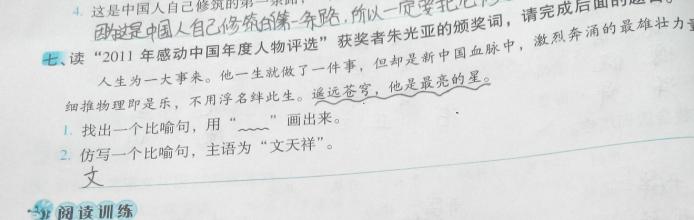 4. 这是中国人自己修筑的第一条路,
因为这是中国人自己修筑的第一条路,所以一定要把它修
七、读“2011 年感动中国年度人物评选”获奖者朱光亚的颁奖词,请完成后面的题目。
人生为一大事来。他一生就做了一件事,但却是新中国血脉中,激烈奔涌的最雄壮力量
细推物理即是乐,不用浮名绊此生。遥远苍穹,他是最亮的星。
1. 找出一个比喻句,用“﹏﹏”画出来。
2. 仿写一个比喻句,主语为“文天祥”。
文
阅读训练